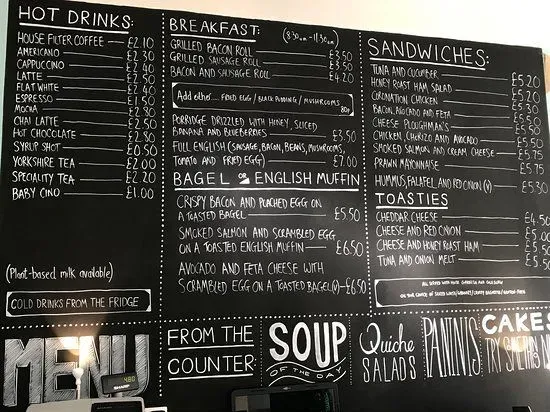 HOT DRINKS:
HOUSE FILTER COFFEE - £2.10
AMERICANO £2.30
CAPPUCCINO £2.40
LATTE £2.50
FLAT WHITE £2.40
ESPRESSO £1.50
MOCHA £2.30
CHAI LATTE £2.50
HOT CHOCOLATE £2.50
SYRUP SHOT £0.50
YORKSHIRE TEA £2.00
SPECIALITY TEA £2.20
BABY CINO £1.00
(Plant-based milk available)
COLD DRINKS FROM THE FRIDGE
BREAKFAST: (8:30am-11:30am)
GRILLED BACON ROLL £3.50
GRILLED SAUSAGE ROLL £3.50
BACON AND SAUSAGE ROLL £4.20
Add either.... FRIED EGG / BLACK PUDDING / MUSHROOMS
80p
PORRIDGE DRIZZLED WITH HONEY, SLICED
BANANA AND BLUEBERRIES £3.50
FULL ENGLISH (SAUSAGE, BACON, BEANS, MUSHROOMS,
TOMATO AND FRIED EGG) £7.00
BAGEL OR ENGLISH MUFFIN
CRISPY BACON AND POACHED EGG ON
A TOASTED BAGEL £5.50
SMOKED SALMON AND SCRAMBLED EGG
ON A TOASTED ENGLISH MUFFIN £6.50
AVOCADO AND FETA CHEESE WITH
SCRAMBLED EGG ON A TOASTED BAGEL (V) £6.50
SANDWICHES:
TUNA AND CUCUMBER £5.20
HONEY ROAST HAM SALAD £5.20
CORONATION CHICKEN £5.30
BACON, AVOCADO AND FETA £5.50
CHEESE PLOUGHMAN'S £5.20
CHICKEN, CHORIZO AND AVOCADO £5.50
SMOKED SALMON AND CREAM CHEESE £5.75
PRAWN MAYONNAISE £5.75
HUMMUS, FALAFEL AND RED ONION (V) £5.30
TOASTIES
CHEDDAR CHEESE £4.50
CHEESE AND RED ONION £5.00
CHEESE AND HONEY ROAST HAM
TUNA AND ONION MELT
MENU
FROM THE
COUNTER:
SOUP
OF THE DAY
Quiche
SALADS
PANINIS
CAKES
SHARP